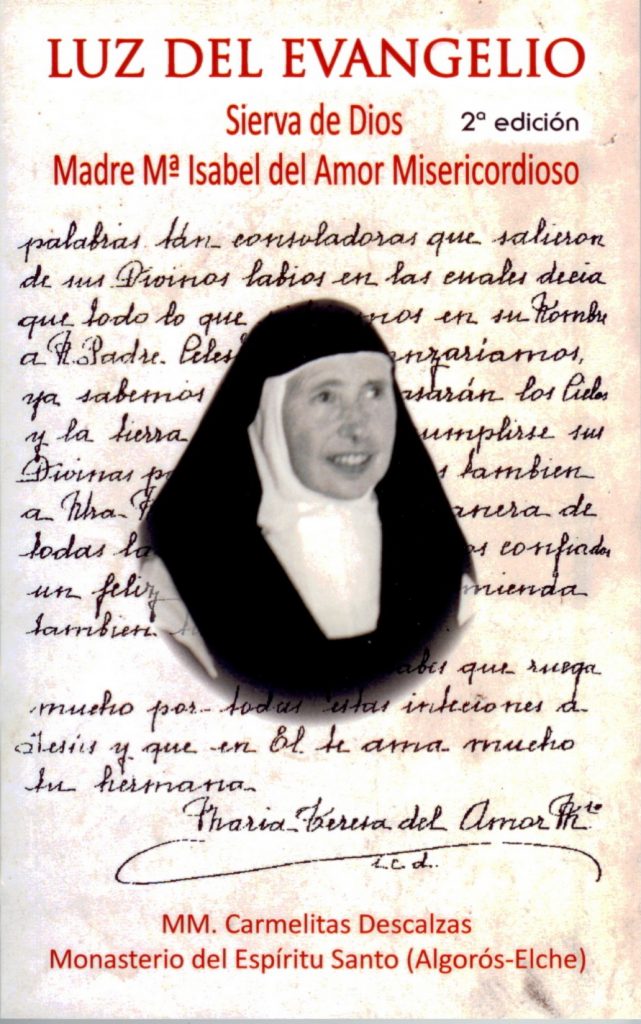 LUZ DEL EVANGELIO
Sierva de Dios 2ª edición
Madre Mª Isabel del Amor Misericordioso
palabras tán consoladoras que salieron
de sus Divinos labios en las cuales decia
que todo lo que mos en su Nombre
a N. Padre Celes anzaríamos,
ya sabemos asarán los Cielos
y la tierra umplirse sus
Divinas tambien
a Ntra. anera de
todas la os confiados
un feliz mienda
tambien
abes que ruega
mucho por todas estas inteciones a
Jesús y que en El te ama mucho
tu hermana
Maria Teresa del Amor Mto
i.c.d.
MM. Carmelitas Descalzas
Monasterio del Espíritu Santo (Algorós-Elche)